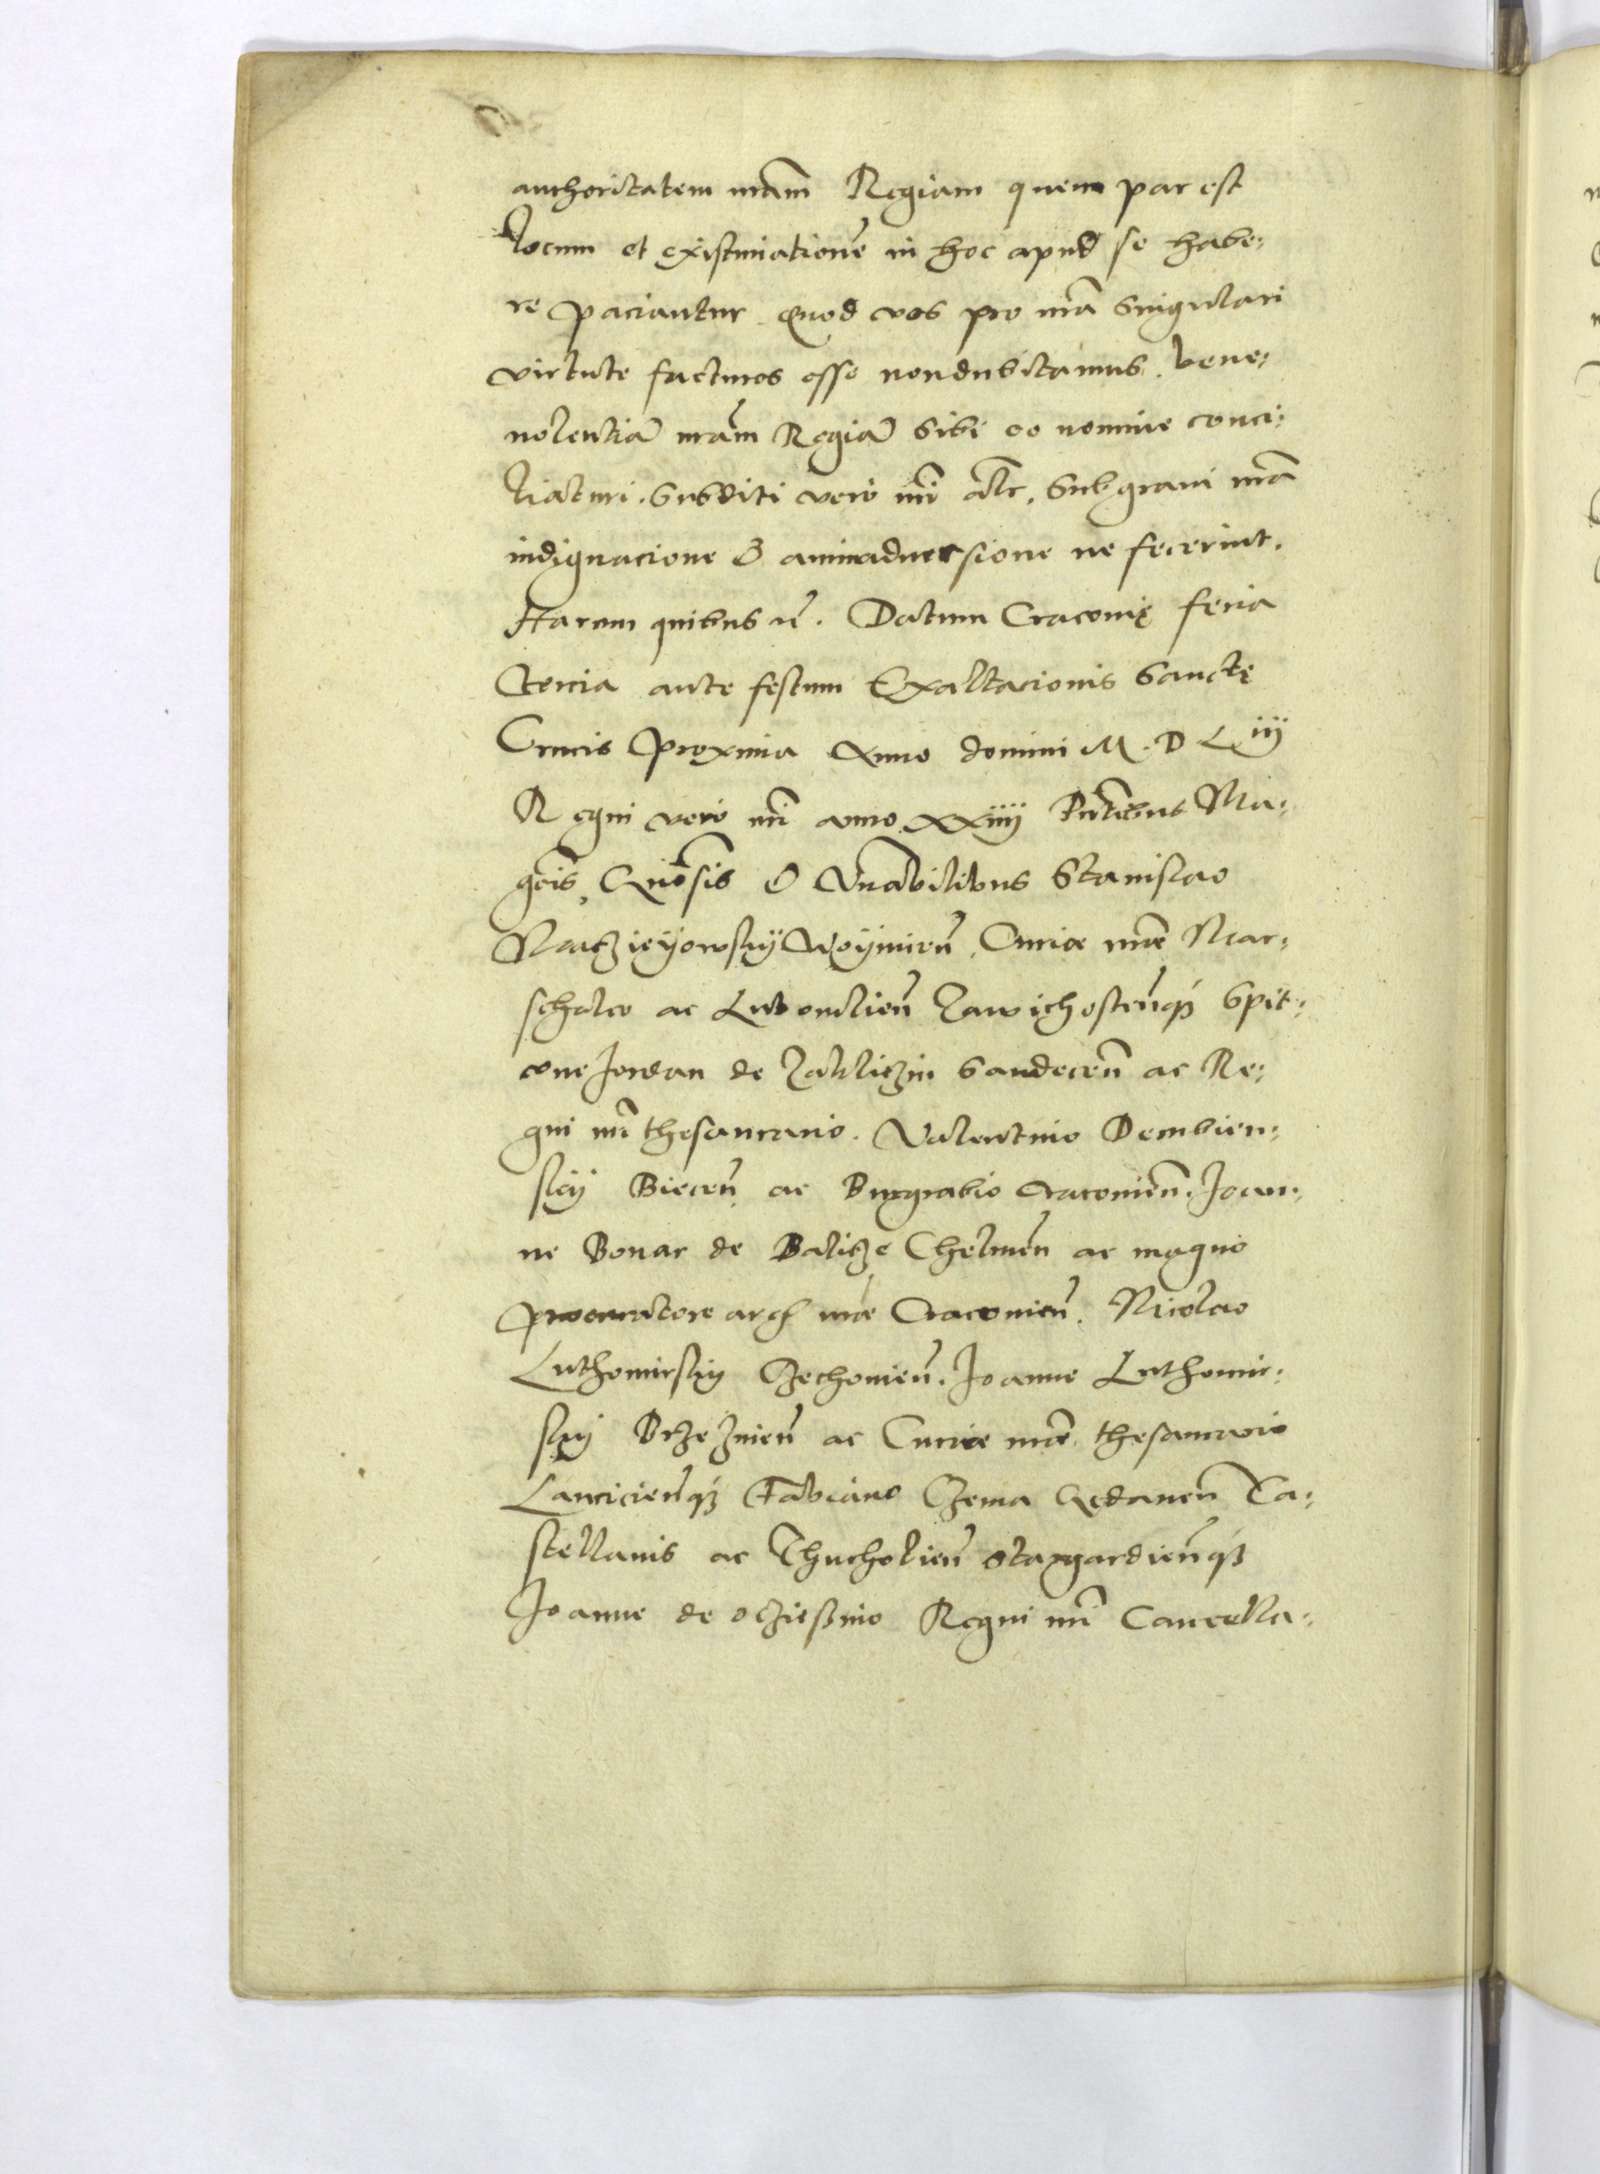 authoritatem nrãm Regiam quem par est
locum et existimationẽ in hoc apud se habe:
re paciantur. Quod vos pro nrã singulari
virtute facturos esse nondubitamus. bene:
uolentiã nrãm Regiã sibi eo nomine conci:
liaturi. Subditi vero nri alr. sub graui nrã
indignacione & animaduersione ne fecerint.
Harum quibus rẽ. Datum Cracouię feria
Tercia ante festum Exaltacionis Sanctę
Crucis proxima Anno domini M. D Liij
Regni vero nri anno xxiiij Pntibus Ma:
gcis, Gnosis & Vnãbilibus Stanislao
Maczieÿowskÿ Woÿnicen̄, Curiæ nrẽ Mar:
schalco ac Lubomlien̄ Zawichosten̄q3 Spit:
cone Jordan de Zakliczin Sandecen̄ ac Re:
gni nri thesaurario. Valentino Dembien:
skÿ Biecen̄ ac Burgrabio Cracouien̄. Joan:
ne Bonar de Balicze Chelmen̄ ac magno
procuratore arcĩs nrae Cracouien̄. Nicolao
Luthomirskÿ Czechouien̄. Joanne Luthomir:
skÿ Brzezinen̄ ac Curiæ nrẽ thesaurario
Lancicien̄q3 Fabiano Czema Gedanen̄ Ca:
stellanis ac Thucholien̄ stargardien̄q3
Joanne de oczießino Regni nri Cancella: